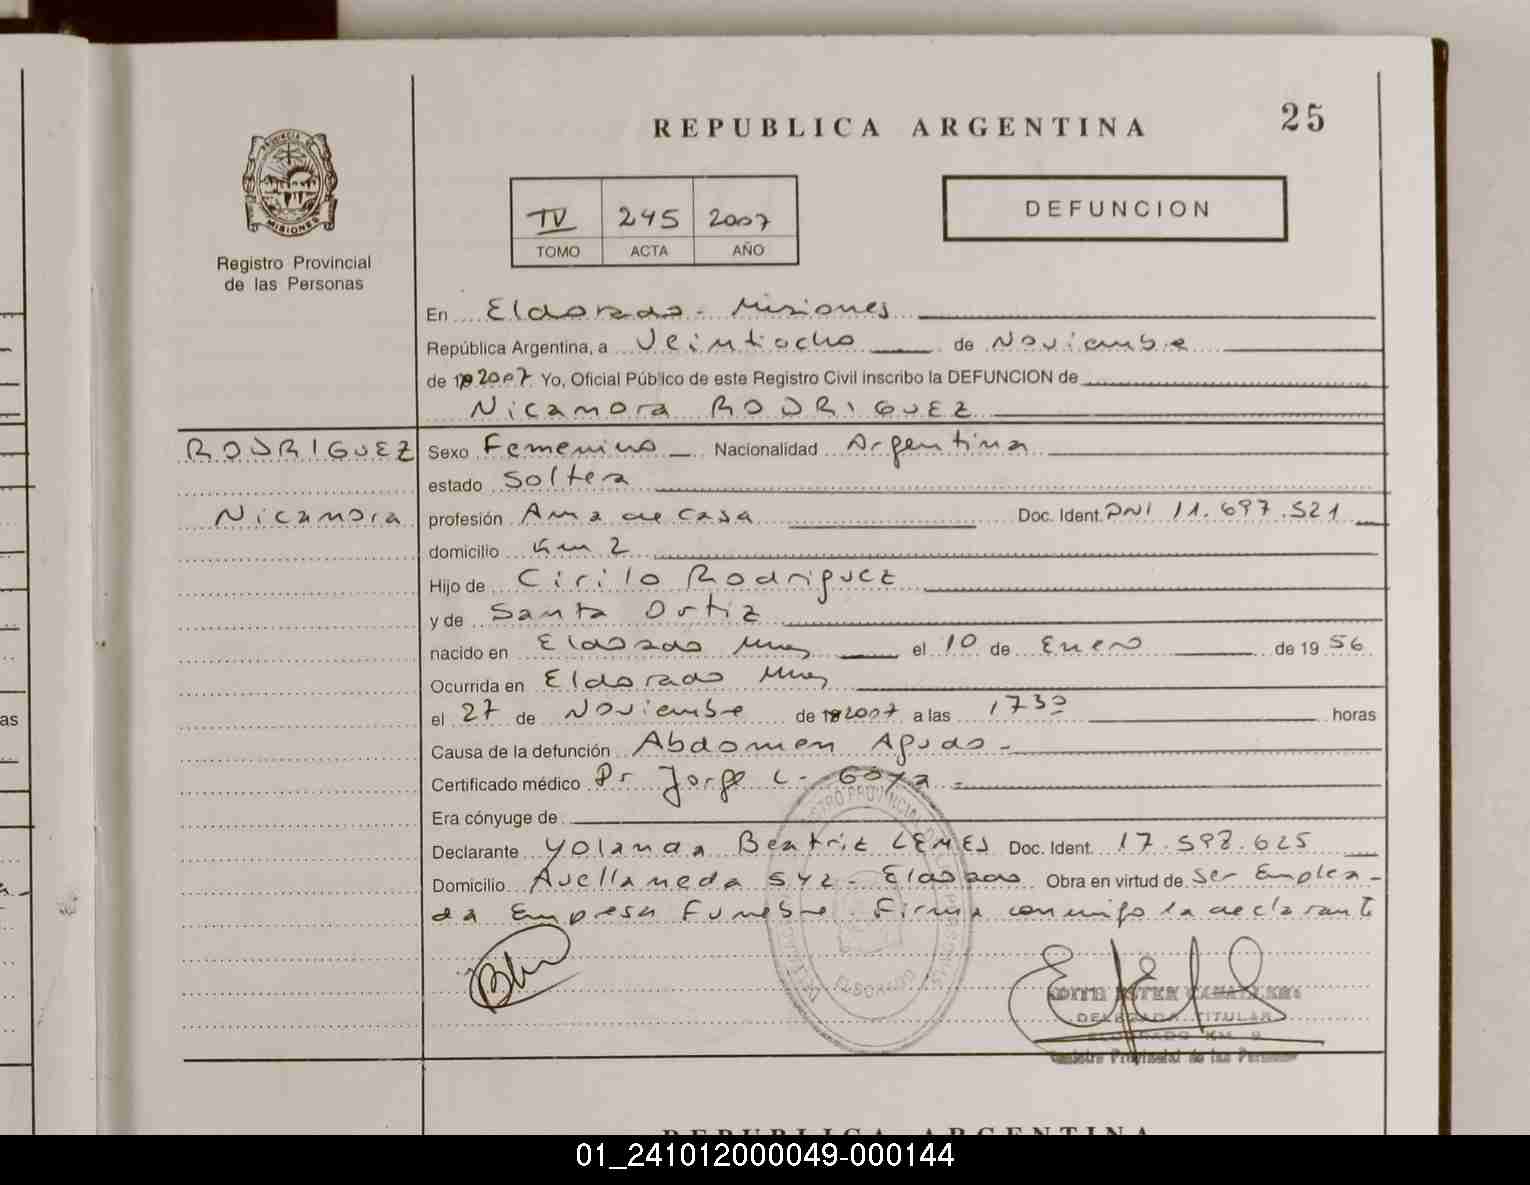 REPUBLICA ARGENTINA
25
PROVINCIA DE
MISIONES
Registro Provincial
de las Personas
TV 245 2007
TOMO ACTA AÑO
DEFUNCION
En Eldorado - Misiones
República Argentina, a Veintiocho de Noviembre
de 2007 Yo, Oficial Público de este Registro Civil inscribo la DEFUNCION de
Nicamora RODRIGUEZ
RODRIGUEZ
Sexo Femenino Nacionalidad Argentina
estado Soltera
Nicamora
profesión Ama de casa Doc. Ident. DNI 11.697.521
domicilio Km 2
Hijo de Cirilo Rodriguez
y de Santa Ortiz
nacido en Eldorado Mnes el 10 de Enero de 1956
Ocurrida en Eldorado Mnes
el 27 de Noviembre de 2007 a las 1730 horas
Causa de la defunción Abdomen Agudo -
Certificado médico Dr Jorge L. Goya -
Era cónyuge de
Declarante Yolanda Beatriz LEMES Doc. Ident. 17.598.625
Domicilio Avellaneda 542 - Eldorado Obra en virtud de Ser Emplea-
da Empresa Funebre. Firma conmigo la declarante
ELDORADO
EDITH ESTER
DELEGADA TITULAR
ELDORADO KM 9
Registro Provincial de las Personas
REPUBLICA ARGENTINA
as
01_241012000049-000144